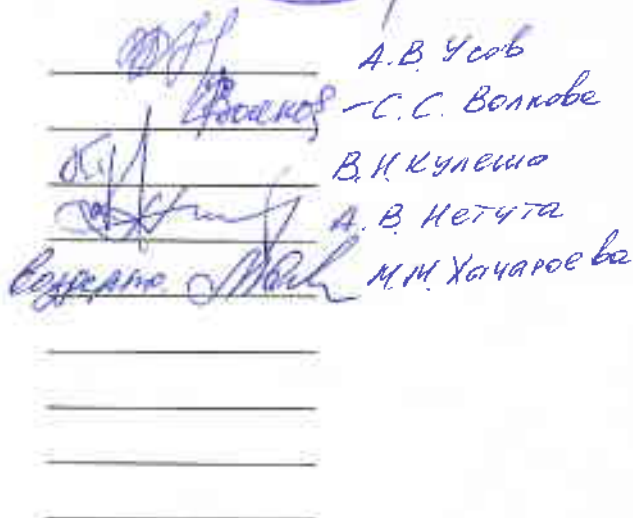 А.В. Усов
– С.С. Волкова
В.Н. Кулеша
А.В. Нетута
М.М. Хачароева